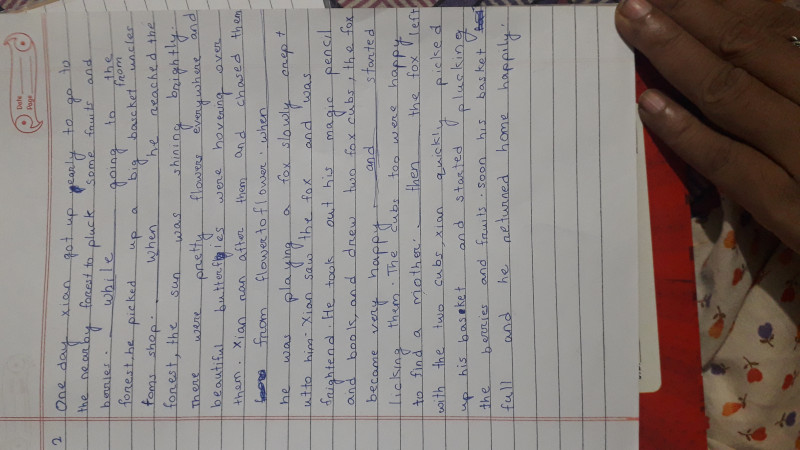 Date
Page
2 One day xian got up early to go to
the nearby forest to pluck some fruits and
berries. while going to the
forest, he picked up a big basket from uncle
toms shop. when he reached the
forest, the sun was shining brightly.
There were pretty flowers everywhere and
beautiful butterflies were hovering over
them. Xian ran after them and chased them
from flower to flower. when
he was playing a fox slowly crept
utto him. Xian saw the fox and was
frightend. He took out his magic pencil
and book, and drew two fox cubs, the fox
became very happy and started
licking them. The cubs too were happy
to find a mother. then the fox left
with the two cubs, xian quickly picked
up his basket and started plucking
the berries and fruits. soon his basket
full and he returned home happily.